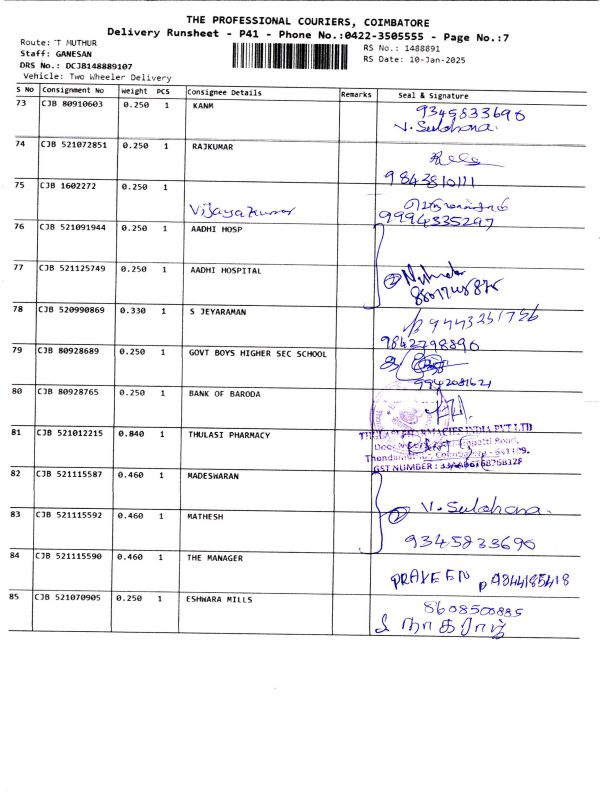 THE PROFESSIONAL COURIERS, COIMBATORE
Delivery Runsheet - P41 - Phone No.:0422-3505555 - Page No.:7
Route: 'T MUTHUR
RS No.: 1488891
Staff: GANESAN
RS Date: 10-Jan-2025
DRS No.: DCJB148889107
Vehicle: Two Wheeler Delivery
S No Consignment No Weight PCS Consignee Details Remarks Seal & Signature
73 CJB 80910603 0.250 1 KANM 9345833690
V. Sulohana.
74 CJB 521072851 0.250 1 RAJKUMAR
9843810111
75 CJB 1602272 0.250 1
Vijayakumar 9994335297
76 CJB 521091944 0.250 1 AADHI HOSP
77 CJB 521125749 0.250 1 AADHI HOSPITAL
78 CJB 520990869 0.330 1 S JEYARAMAN 9443251756
9842798890
79 CJB 80928689 0.250 1 GOVT BOYS HIGHER SEC SCHOOL
9942081621
80 CJB 80928765 0.250 1 BANK OF BARODA
81 CJB 521012215 0.840 1 THULASI PHARMACY PHARMACIES INDIA PVT LTD
Road,
Coimbatore - 641109.
GST NUMBER :
82 CJB 521115587 0.460 1 MADESWARAN
2 V. Sulohana.
83 CJB 521115592 0.460 1 MATHESH
9345833690
84 CJB 521115590 0.460 1 THE MANAGER
PRAVEEN 9844185418
85 CJB 521070905 0.250 1 ESHWARA MILLS 8608500885
நாகராஜ்